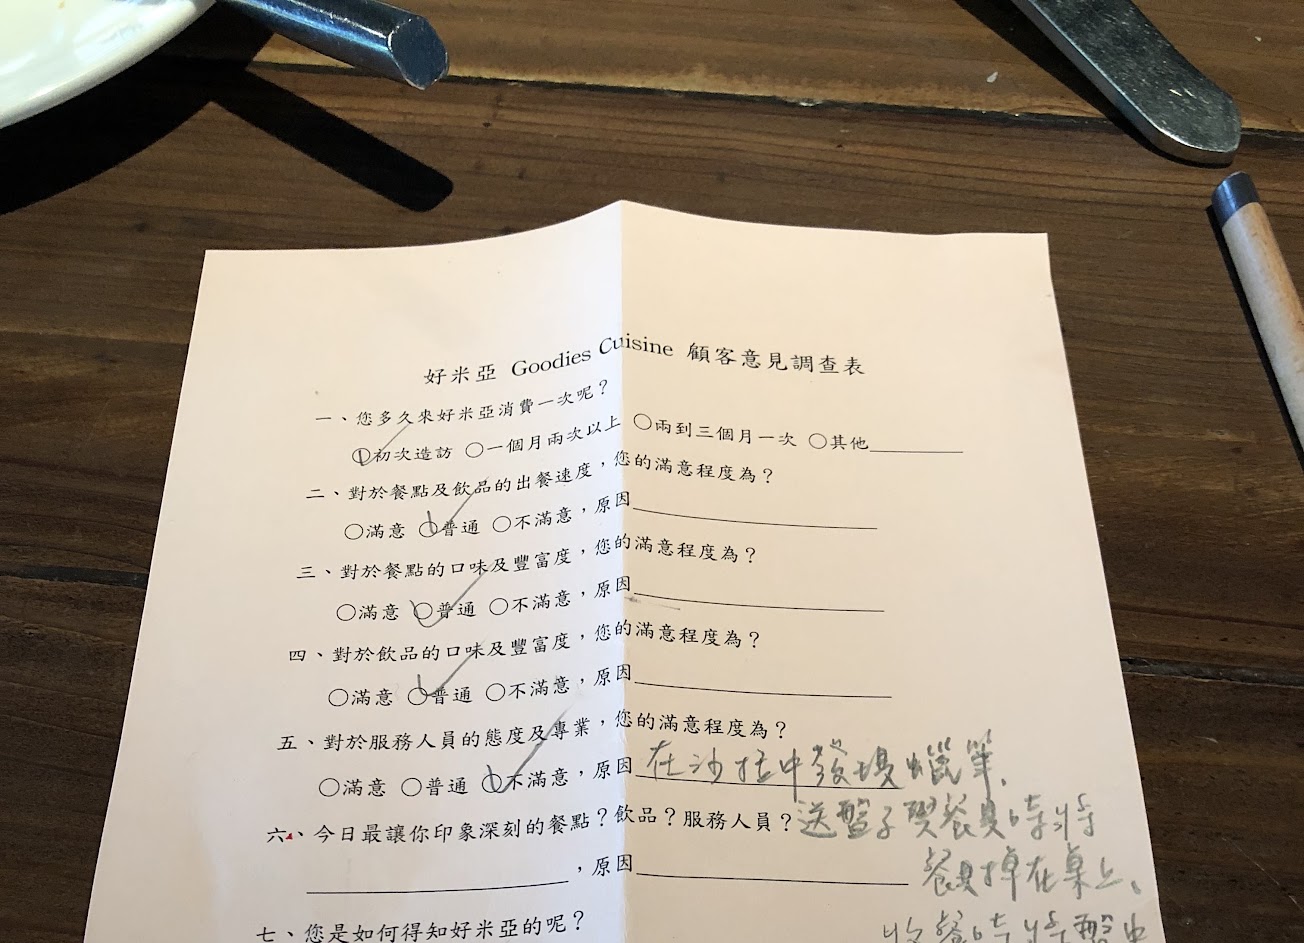 好米亞 Goodies Cuisine 顧客意見調查表
一、您多久來好米亞消費一次呢？
○初次造訪 ○一個月兩次以上 ○兩到三個月一次 ○其他
二、對於餐點及飲品的出餐速度，您的滿意程度為？
○滿意 ○普通 ○不滿意，原因
三、對於餐點的口味及豐富度，您的滿意程度為？
○滿意 ○普通 ○不滿意，原因
四、對於飲品的口味及豐富度，您的滿意程度為？
○滿意 ○普通 ○不滿意，原因
五、對於服務人員的態度及專業，您的滿意程度為？
○滿意 ○普通 ○不滿意，原因 在沙拉中發現蠟筆、
六、今日最讓你印象深刻的餐點？飲品？服務人員？ 送盤子與餐具時將
，原因 餐具掉在桌上、
七、您是如何得知好米亞的呢？
收餐時將盤中